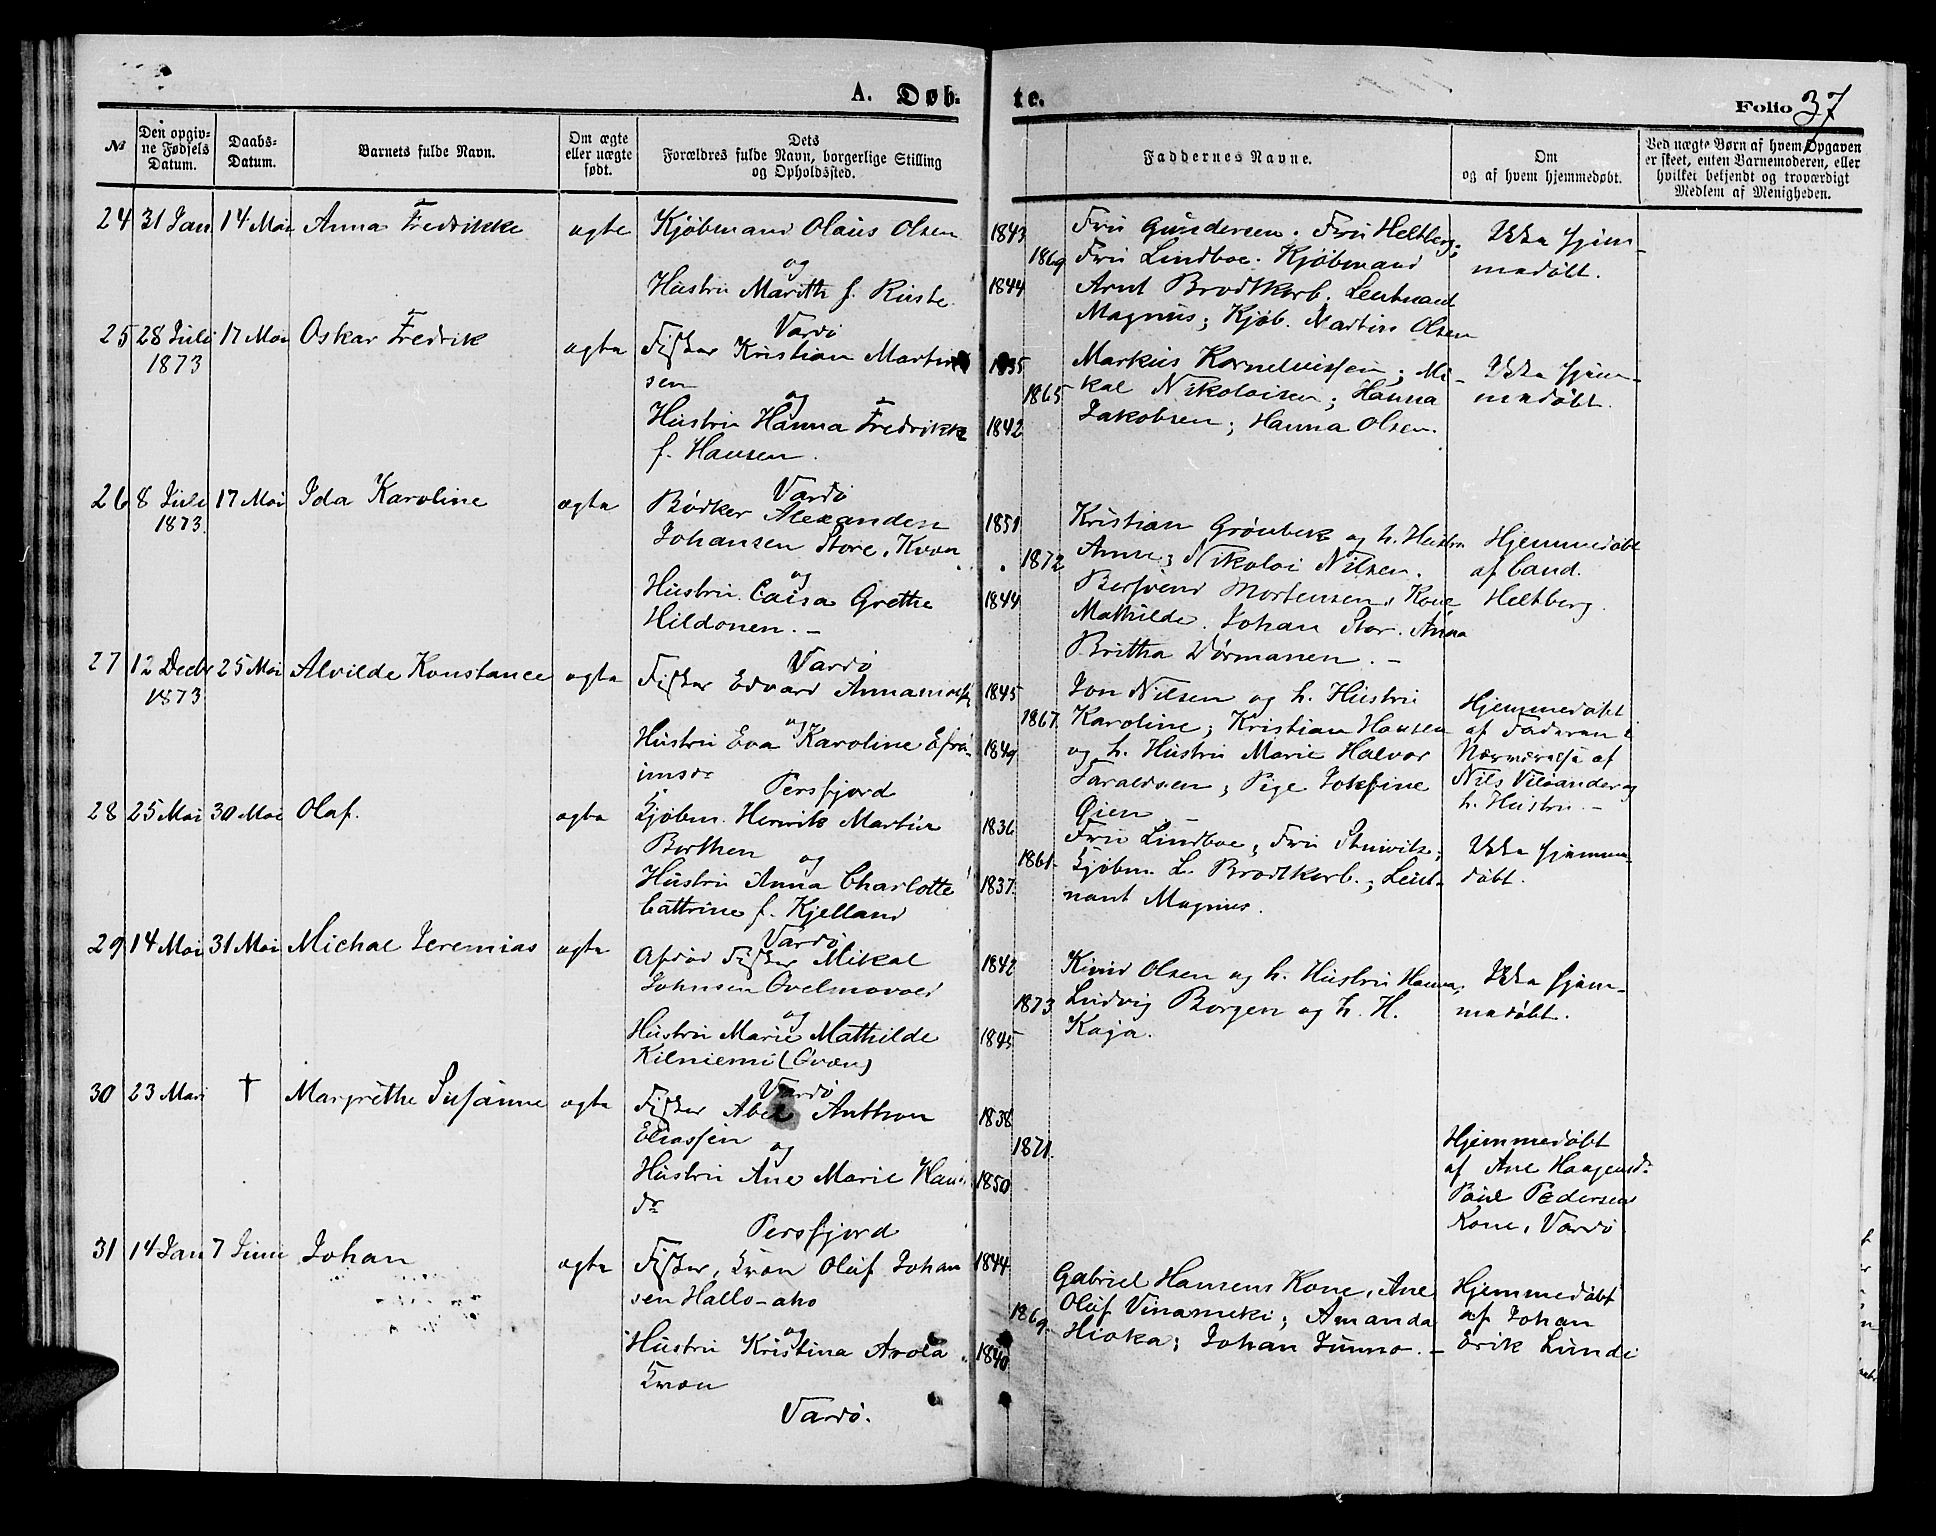 A. Døb-
te.
Folio 37
№
Den opgiv-
ne Fødsels
Datum.
Daabs-
Datum.
Barnets fulde Navn.
Om ægte
eller uægte
født.
Dets
Forældres fulde Navn, borgerlige Stilling
og Opholdssted.
Faddernes Navne.
Om
og af hvem hjemmedøbt.
Ved uægte Børn af hvem Opgaven
er skeet, enten Barnemoderen, eller
hvilket bekjendt og troværdigt
Medlem af Menigheden.
24
31 Jan
14 Mai
Anna Fredrikke
ægte
Kjøbmand Olaus Olsen
og
Hustru Marith f. Ruste.
Vardø
1843
1869
1844
Fru Gundersen. Fru Heltberg;
Fru Lindboe. Kjøbmand
Arnt Brodtkorb. Leutnant
Magnus; Kjøb. Martin Olsen
Ikke hjem-
medøbt.
25
28 Juli
1873
17 Mai
Oskar Fredrik
ægte
Fisker Kristian Martin
sen
og
Hustru Hanna Fredrikke
f. Hansen.
Vardø
1835
1865
1842
Markus Kornelinssen; Mi-
kal Nikolaisen; Hanna
Jakobsen; Hanna Olsen.
Ikke hjem-
medøbt.
26
8 Juli
1873.
17 Mai
Ida Karoline
ægte
Bødker Alexander
Johansen Store, Kvæn
og
Hustru Caisa Grethe
Hildonen. –
Vardø
1851
1872
1844
Kristian Grønbek og h. Hustru
Anne; Nikolai Nilsen.
Mortensens Kone
Mathilde. Johan Stor. Anna
Britha Wørmanen. –
Hjemmedøbt
af Cand.
Heltberg.
27
12 Decbr
1873
25 Mai
Alvilde Konstance
ægte
Fisker Edvard
og
Hustru Eva Karoline Efra-
imsdr
Persfjord
1845
1867.
1849
Jon Nilsen og h. Hustru
Karoline; Kristian Hansen
og h. Hustru Marie Halvor
Taraldsen; Pige Josefine
Øien
Hjemmedøbt
af Faderen i
Nærværelse af
Nils Vilsander og
h. Hustru. –
28
25 Mai
30 Mai
Olaf.
ægte
Kjøbm. Henrik Martin
Borthen
og
Hustru Anna Charlotte
Cathrine f. Kjelland
Vardø
1836
1861.
1837.
Fru Lindboe, Fru
Kjøbm. L. Brodtkorb.; Leut-
nant Magnus.
Ikke hjemme-
døbt.
29
14 Mai
31 Mai
Michal Jeremias
ægte
Afdød Fisker Mikal
Johnsen
og
Hustru Marie Mathilde
Kilniemi (Qvæn)
Vardø
1842
1873
1845
Olsen og h. Hustru Hanna,
Ludvig Borgen og h. H.
Kaja.
Ikke hjem-
medøbt.
30
23 Mai
†
Margrethe Susanne
ægte
Fisker Abel Anthon
Eliassen
og
Hustru Ane Marie Hans
dr
Persfjord
1838
1871.
1850
Hjemmedøbt
af Ane Haagensdr
Paul Pedersens
Kone, Vardø
31
14 Jan
7 Juni
Johan
ægte
Fisker, Kvæn Oluf Johan
sen Hallo-aho
og
Hustru Kristina Arola
Kvæn
Vardø.
1844
1869.
1840
Gabriel Hansens Kone, Ane
Oluf Vinameki; Amanda
Hioka; Johan Junno. –
Hjemmedøbt
af Johan
Erik Lundi